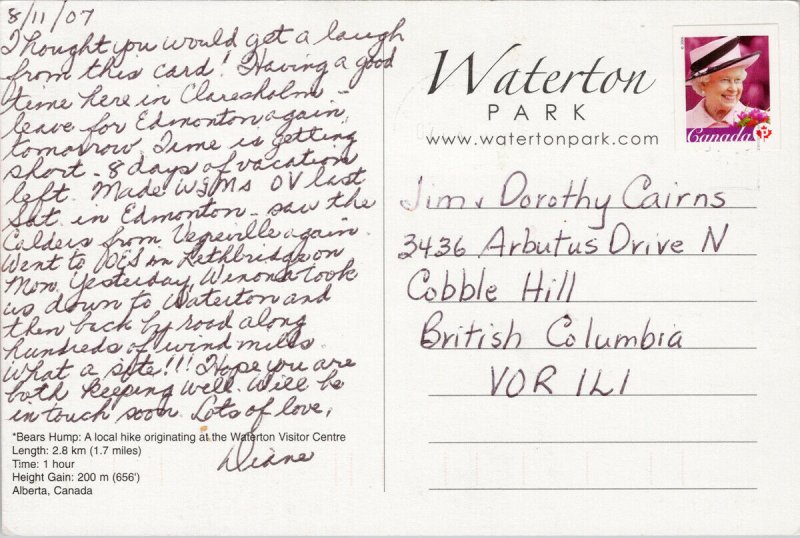 8/11/07
Thought you would get a laugh
from this card! Having a good
time here in Claresholm -
leave for Edmonton again
tomorrow. Time is getting
short - 8 days of vacation
left. Made WGM's OV last
Sat. in Edmonton - saw the
Calders from Vegreville again.
Went to OES in Lethbridge on
Mon. Yesterday, Winona took
us down to Waterton and
then back by road along
hundreds of wind mills.
What a site!!! Hope you are
both keeping well. Will be
in touch soon. Lots of love,
Diane
*Bears Hump: A local hike originating at the Waterton Visitor Centre
Length: 2.8 km (1.7 miles)
Time: 1 hour
Height Gain: 200 m (656')
Alberta, Canada
Waterton
PARK
www.watertonpark.com
Canada P
Jim & Dorothy Cairns
3436 Arbutus Drive N
Cobble Hill
British Columbia
V0R 1L1